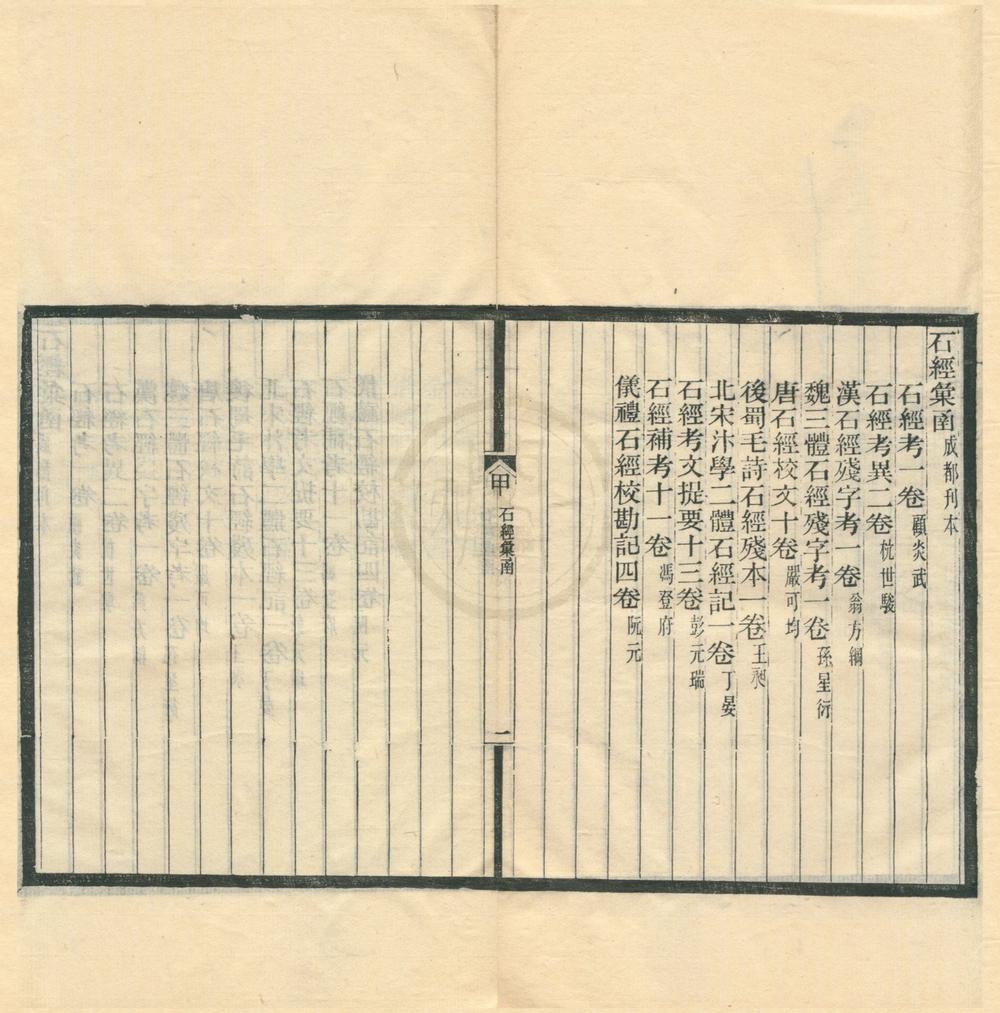 石經彙函成都刊本
石經考一卷顧炎武
石經考異二卷杭世駿
漢石經殘字考一卷翁方綱
魏三體石經殘字考一卷孫星衍
唐石經校文十卷嚴可均
後蜀毛詩石經殘本一卷王昶
北宋汴學二體石經記一卷丁晏
石經考文提要十三卷彭元瑞
石經補考十一卷馮登府
儀禮石經校勘記四卷阮元
甲
石經彙函
一